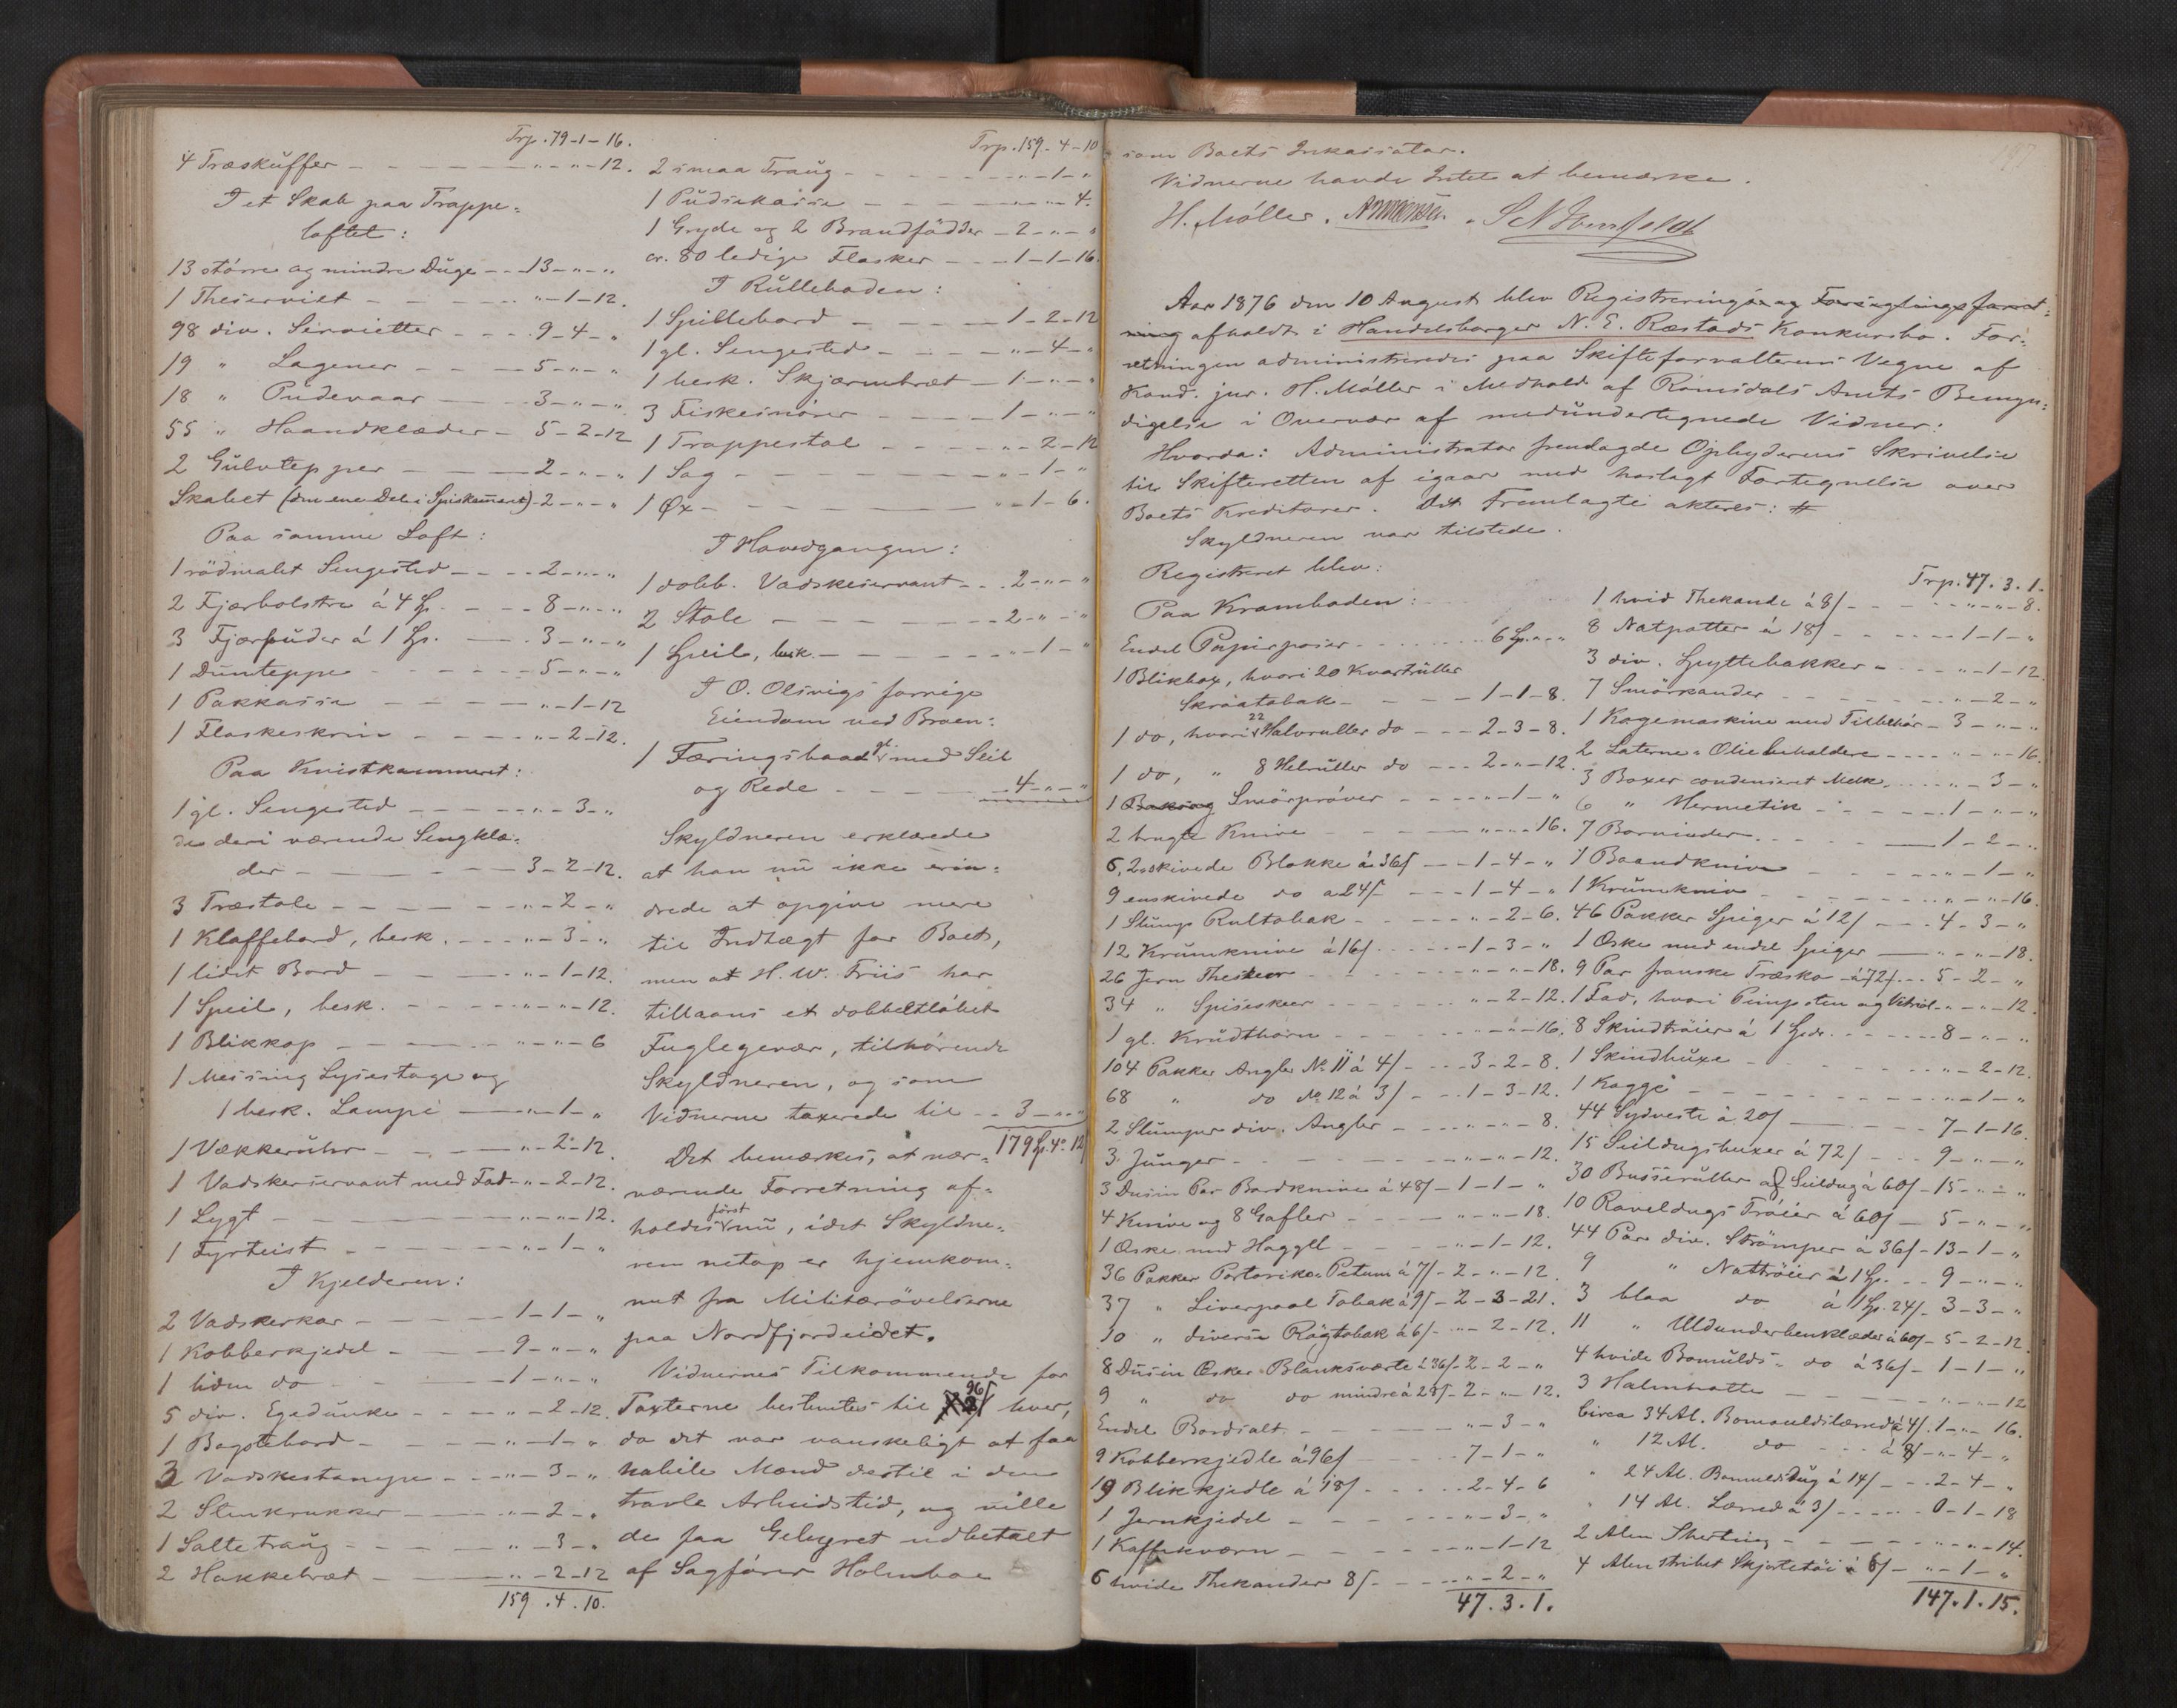 Trp. 79-1-16.
4 Træskuffer - - - - - " - " - 12.
I et Skab paa Trappe=
loftet:
13 större og mindre Duge - - 13 - " - "
1 Theserviet - - - - " - 1 - 12.
98 div. Servietter - - - 9 - 4 - "
19 " Lagener - - - 5 - " - "
18 " Pudevaar - - - 3 - " - "
55 " Haandklæder - 5 - 2 - 12
2 Gulvtepper - - - 2 - " - "
Skabet (den ene Del i Spiskamret) - 2 - " - "
Paa samme Loft:
1 rödmalet Sengested - - - 2 - " - "
2 Fjærbolstre á 4 Sp. - - - 8 - " - "
3 Fjærpuder á 1 Sp. - - - 3 - " - "
1 Dunteppe - - - - 5 - " - "
1 Pakkasse - - - - " - 1 - 12
1 Flaskeskrin - - - - " - 2 - 12.
Paa Kvistkammeret:
1 gl. Sengested - - - - " - 3 - "
de deri værende Sengklæ=
der - - - - - 3 - 2 - 12.
3 Træstole - - - - " - 2 - "
1 Klaffebord, besk. - - - " - 3 - "
1 lidet Bord - - - - " - 1 - 12.
1 Speil, besk. - - - - " - " - 12.
1 Blikkop - - - - " - " - 6
1 Messing Lysestage og
1 besk. Lampe - - - " - 1 - "
1 Vækkeruhr - - - - " - 2 - 12.
1 Vadskerservant med Fad - " - 2 - 12.
1 Lygt - - - - - " - " - 12.
1 Fyrteist - - - - " - 1 - "
I Kjelderen:
2 Vadskerkar - - - - 1 - 1 - "
1 Kobberkjedel - - - 9 - " - "
1 liden do - - - - 1 - " - "
5 div. Egedunke - - - " - 2 - 12.
1 Bagstebord - - - - " - 1 - "
3 Vadskestampe - - - " - 3 - "
2 Stenkrukker - - - " - 2 - "
1 Saltetraug - - - - " - 3 - "
2 Hakkebræt - - - " - 2 - 12
159 . 4 . 10.
Trp. 159 - 4 - 10
2 smaa Traug - - - - - " - 1 - "
1 Pudsekasse - - - - " - " - 4.
1 Gryde og 2 Brandfödder - 2 - " - "
cr. 80 ledige Flasker - - - 1 - 1 - 16.
I Rulleboden:
1 Spillebord - - - - 1 - 2 - 12
1 gl. Sengested - - - - " - 4 - "
1 besk. Skjærmbræt - 1 - " - "
3 Fiskesnörer - - - - 1 - " - "
1 Trappestol - - - - " - 2 - 12
1 Sag - - - - - " - 1 - "
1 Øx - - - - - " - 1 - 6.
I Hovedgangen:
1 dobb. Vadskeservant - - 2 - " - "
2 Stole - - - - - 2 - " - "
1 Speil, besk. - - - - " - 1 - "
I O. Olsvigs forrige
Eiendom ved Broen:
1 Færingsbaad gl. med Seil
og Rede - - - - - 4 - " - "
Skyldneren erklærede
at han nu ikke erin=
drede at opgive mere
til Indtægt for Boet,
men at H. W. Friis har
tillaans et dobbeltlöbet
Fuglegevær, tilhörende
Skyldneren, og som
Vidnerne taxerede til - - 3 - " - "
179 Sp. 4 - 12
Det bemærkes, at nær=
værende Forretning af=
först
holdes nu, idet Skyldne=
ren netop er hjemkom=
met fra Militærövelserne
paa Nordfjordeidet.
Vidnernes Tilkommende for
Taxterne bestemtes til 96 s hver,
da det var vanskeligt at faa
habile Mænd dertil i den
travle Arbeidstid, og ville
de faa Gebyret udbetalt
af Sagförer Holmboe
som Boets Inkassator.
Vidnerne havde Intet at bemærke.
H. Möller.
Aar 1876 den 10 August blev Registrerings og Forseglingsforret=
ning afholdt i Handelsborger N. E. Ræstads Konkursbo. For=
retningen administreredes paa Skifteforvalterens Vegne af
Kand. jur. H. Möller i Medhold af Romsdals Amts Bemyn=
digelse i Overvær af medundertegnede Vidner:
Hvorda: Administrator fremlagde Opbyderens Skrivelse
til Skifteretten af igaar med hoslagt Fortegnelse over
Boets Kreditorer. Det Fremlagte akteres: #
Skyldneren var tilstede.
Registreret blev:
Paa Kramboden:
Endel Papirposer - - - - - 6 Sp. " - "
1 Blikbox, hvori 20 Kvartruller
Skraatobak - - - 1 - 1 - 8.
1 do, hvori 22 Halvruller do - - - 2 - 3 - 8.
1 do, " 8 Helruller do - - - 2 - " - 12.
1 Smörpröver - - - - " - 1 - "
2 brugte Knive - - - - " - " - 16.
6, 2-skivede Blokke á 36 s - - 1 - 4 - "
9 enskivede do a 24 s - - - 1 - 4 - "
1 Stump Rultobak - - - - " - 2 - 6.
12 Krumknive á 16 s - - - 1 - 3 - "
26 Jern Theskeer - - - - " - " - 18.
34 " Spiseskeer - - - - " - 2 - 12.
1 gl. Krudthorn - - - - " - " - 16.
104 Pakker Angler No. 11 á 4 s - - - 3 - 2 - 8.
68 " do No 12 á 3 s - - 1 - 3 - 12.
2 Stumper div. Angler - - - - " - " - 8.
3 Junger - - - - - " - " - 12.
3 Dusin Par Bordknive á 48 s - 1 - 1 - "
4 Knive og 8 Gafler - - - - " - " - 18.
1 Æske med Haggel - - - - " - 1 - 12.
36 Pakker Portoriko-Petum á 7 s - 2 - " - 12.
37 " Liverpool Tobak á 9 s - 2 - 3 - 21.
10 " diverse Rögtobak á 6 s - " - 2 - 12.
8 Dusin Æsker Blanksværte á 36 s - 2 - 2 - "
9 " do do mindre á 28 s - 2 - " - 12.
Endel Bordsalt - - - - " - 3 - "
9 Kobberkjedle á 96 s - - - - 7 - 1 - "
19 Blikkjedle á 18 s - - - - 2 - 4 - 6
1 Jernkjedel - - - - " - 3 - "
1 Kaffekværn - - - - " - 1 - 12
6 hvide Thekander 8 s - - - " - 2 - "
47 . 3 . 1.
Trp. 47 . 3 . 1.
1 hvid Thekande á 8 s - - - - " - " - 8.
8 Natpotter á 18 s - - - - 1 - 1 - "
3 div. Spyttebakker - - - " - 1 - 12.
7 Smörkander - - - - " - 2 - "
1 Kogemaskine med Tilbehör - 3 - " - "
2 Laterne-Oliebeholdere - - - " - " - 16.
3 Boxer condenseret Melk - - - " - 3 - "
6 " Hermetik - - - 1 - " - "
7 Borvinder - - - - 1 - 2 - "
1 Baandkniv - - - - " - 1 - "
1 Krumkniv - - - - " - " - 16.
46 Pakker Spiger á 12 s - - - 4 - 3 - "
1 Æske med endel Spiger - - " - " - 18.
9 Par franske Træsko - á 72 s - - 5 - 2 - "
1 Fad, hvori Pimpsten og Vitriol - " - " - 12.
8 Skindtröier á 1 Spd. - - - 8 - " - "
1 Skindbuxe - - - - " - 2 - 12.
1 Kagge - - - - - " - 1 - "
44 Sydveste á 20 s - - - - 7 - 1 - 16.
15 Seildugsbuxer á 72 s - - - 9 - " - "
30 Busseruller af Seildug á 60 s - 15 - " - "
10 Raveldugs Tröier á 60 s - 5 - " - "
44 Par div. Strömper á 36 s - 13 - 1 - "
9 " Nattröier á 1 Sp. - - 9 - " - "
3 blaa do á 1 Sp. 24 s - 3 - 3 - "
11 " Uldunderbenklæder á 60 s - 5 - 2 - 12.
4 hvide Bomulds- do á 36 s - 1 - 1 - "
3 Halmhatte - - - - " - " - 12
Circa 34 Al. Bomuldslærred á 4 s. 1 - " - 16.
" 12 Al. do - - - á 8 s - " - 4 - "
" 24 Al. Bomuldsdug á 14 s - - 2 - 4 - "
" 14 Al. Lærred á 3 s - - - - 0 - 1 - 18
2 Alen Sherting - - - - " - " - 14.
4 Alen stribet Skjortetöi á 6 s - " - 1 - "
147 . 1 . 15.